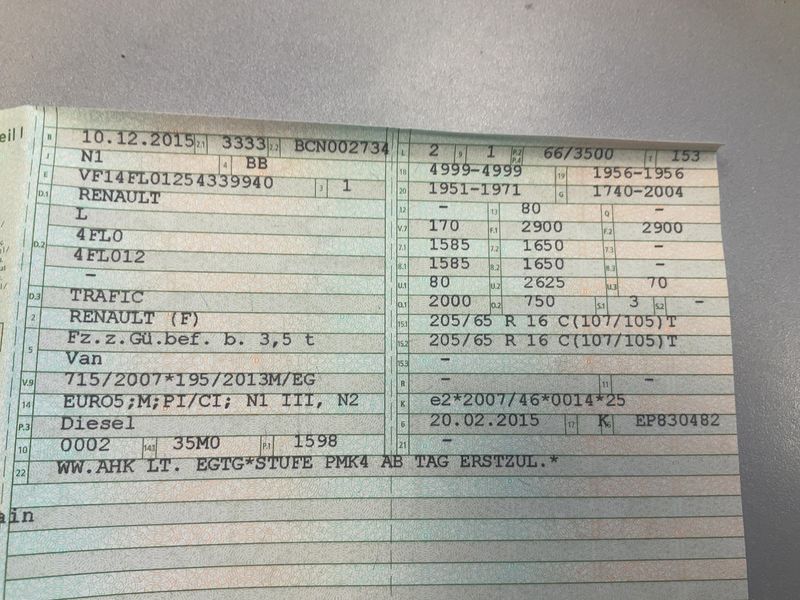 eil!
B 10.12.2015 2.1 3333 2.2 BCN002734
J N1 4 BB
E VF14FL01254339940 3 1
D.1 RENAULT
L
D.2 4FL0
4FL012
–
D.3 TRAFIC
2 RENAULT (F)
5 Fz.z.Gü.bef. b. 3,5 t
Van
V.9 715/2007*195/2013M/EG
14 EURO5;M;PI/CI; N1 III, N2
P.3 Diesel
10 0002 14.1 35M0 P.1 1598
22 WW.AHK LT. EGTG*STUFE PMK4 AB TAG ERSTZUL.*
ain
L 2 9 1 P.2 P.4 66/3500 T 153
18 4999-4999 19 1956-1956
20 1951-1971 G 1740-2004
12 – 13 80 Q –
V.7 170 F.1 2900 F.2 2900
7.1 1585 7.2 1650 7.3 –
8.1 1585 8.2 1650 8.3 –
U.1 80 U.2 2625 U.3 70
O.1 2000 O.2 750 S.1 3 S.2 –
15.1 205/65 R 16 C(107/105)T
15.2 205/65 R 16 C(107/105)T
15.3 –
R – 11 –
K e2*2007/46*0014*25
6 20.02.2015 17 K 16 EP830482
21 –